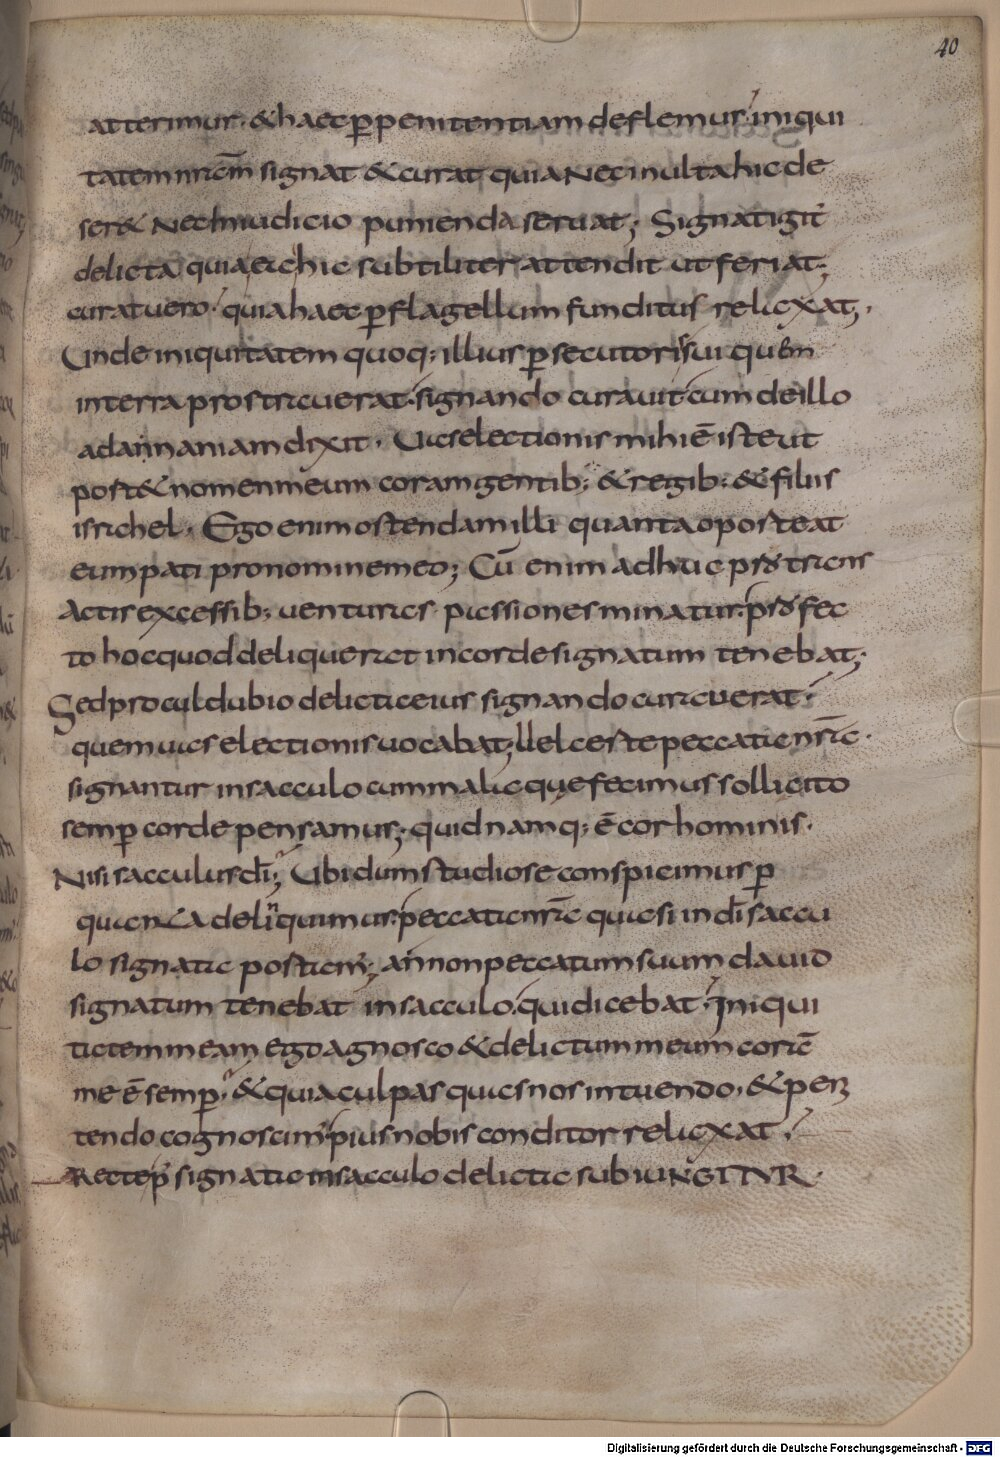 40
atterimur. & haec p̱ penitentiam deflemus. iniqui
tatem nr̄am signat & curat quia nec inulta hic de
ser& nec In iudicio punienda seruat; Signat igit̄
delicta quia ea hic subtiliter attendit ut feriat;
curat uero. quia haec p̱ flagellum funditus relaxat;.
Unde iniquitatem quoq; illius p̱secutoris sui quem
in terra prostrauerat. signando curauit cum de illo
ad annaniam dixit. Uas electionis mihi ē iste ut
port& nomen meum coram gentib; & regib; & filiis
israhel. Ego enim ostendam illi quanta oporteat
eum pati pro nomine meo; Cū enim adhuc pro trans
actis excessib; uenturas passiones minatur. profec
to hoc quod deliquerat in corde signatum tenebat;.
Sed procul dubio delicta eius signando curauerat.
quem uas electionis uocabat; Uel certe peccata nr̄a.
signantur in sacculo cum mala que fecimus sollicito
semp̱ corde pensamus; quid namq; ē cor hominis.
Nisi sacculus dī; Ubi dum studiose conspicimus p̱
quanta delinquimus. peccata nr̄a quasi in dī saccu
lo signata portam'; an non peccatum suum dauid
signatum tenebat in sacculo. qui dicebat. Iniqui
tatem meam ego agnosco & delictum meum corā
me ē semp̱. & quia culpas quas nos intuendo. & peni
tendo cognoscim' pius nobis conditor relaxat.
Recte p' signata in sacculo delicta subiungitur.
Digitalisierung gefördert durch die Deutsche Forschungsgemeinschaft - DFG